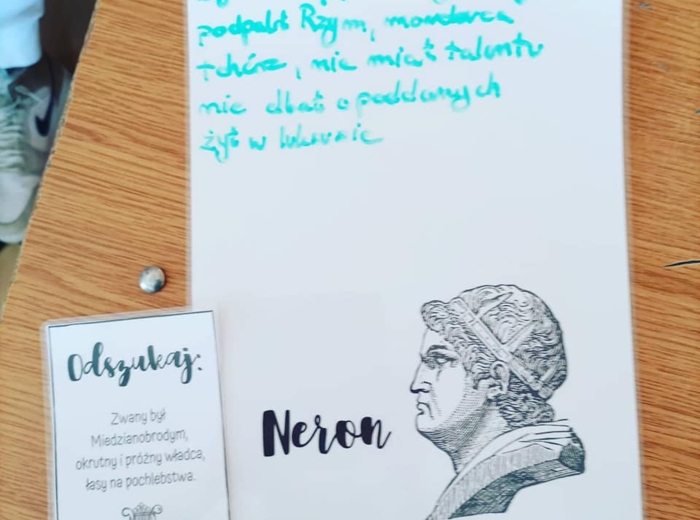 podpalił Rzym, morderca
tchórz, nie miał talentu
nie dbał o poddanych
żył w luksusie
Odszukaj:
Zwany był
Miedzianobrodym,
okrutny i próżny władca,
łasy na pochlebstwa.
Neron